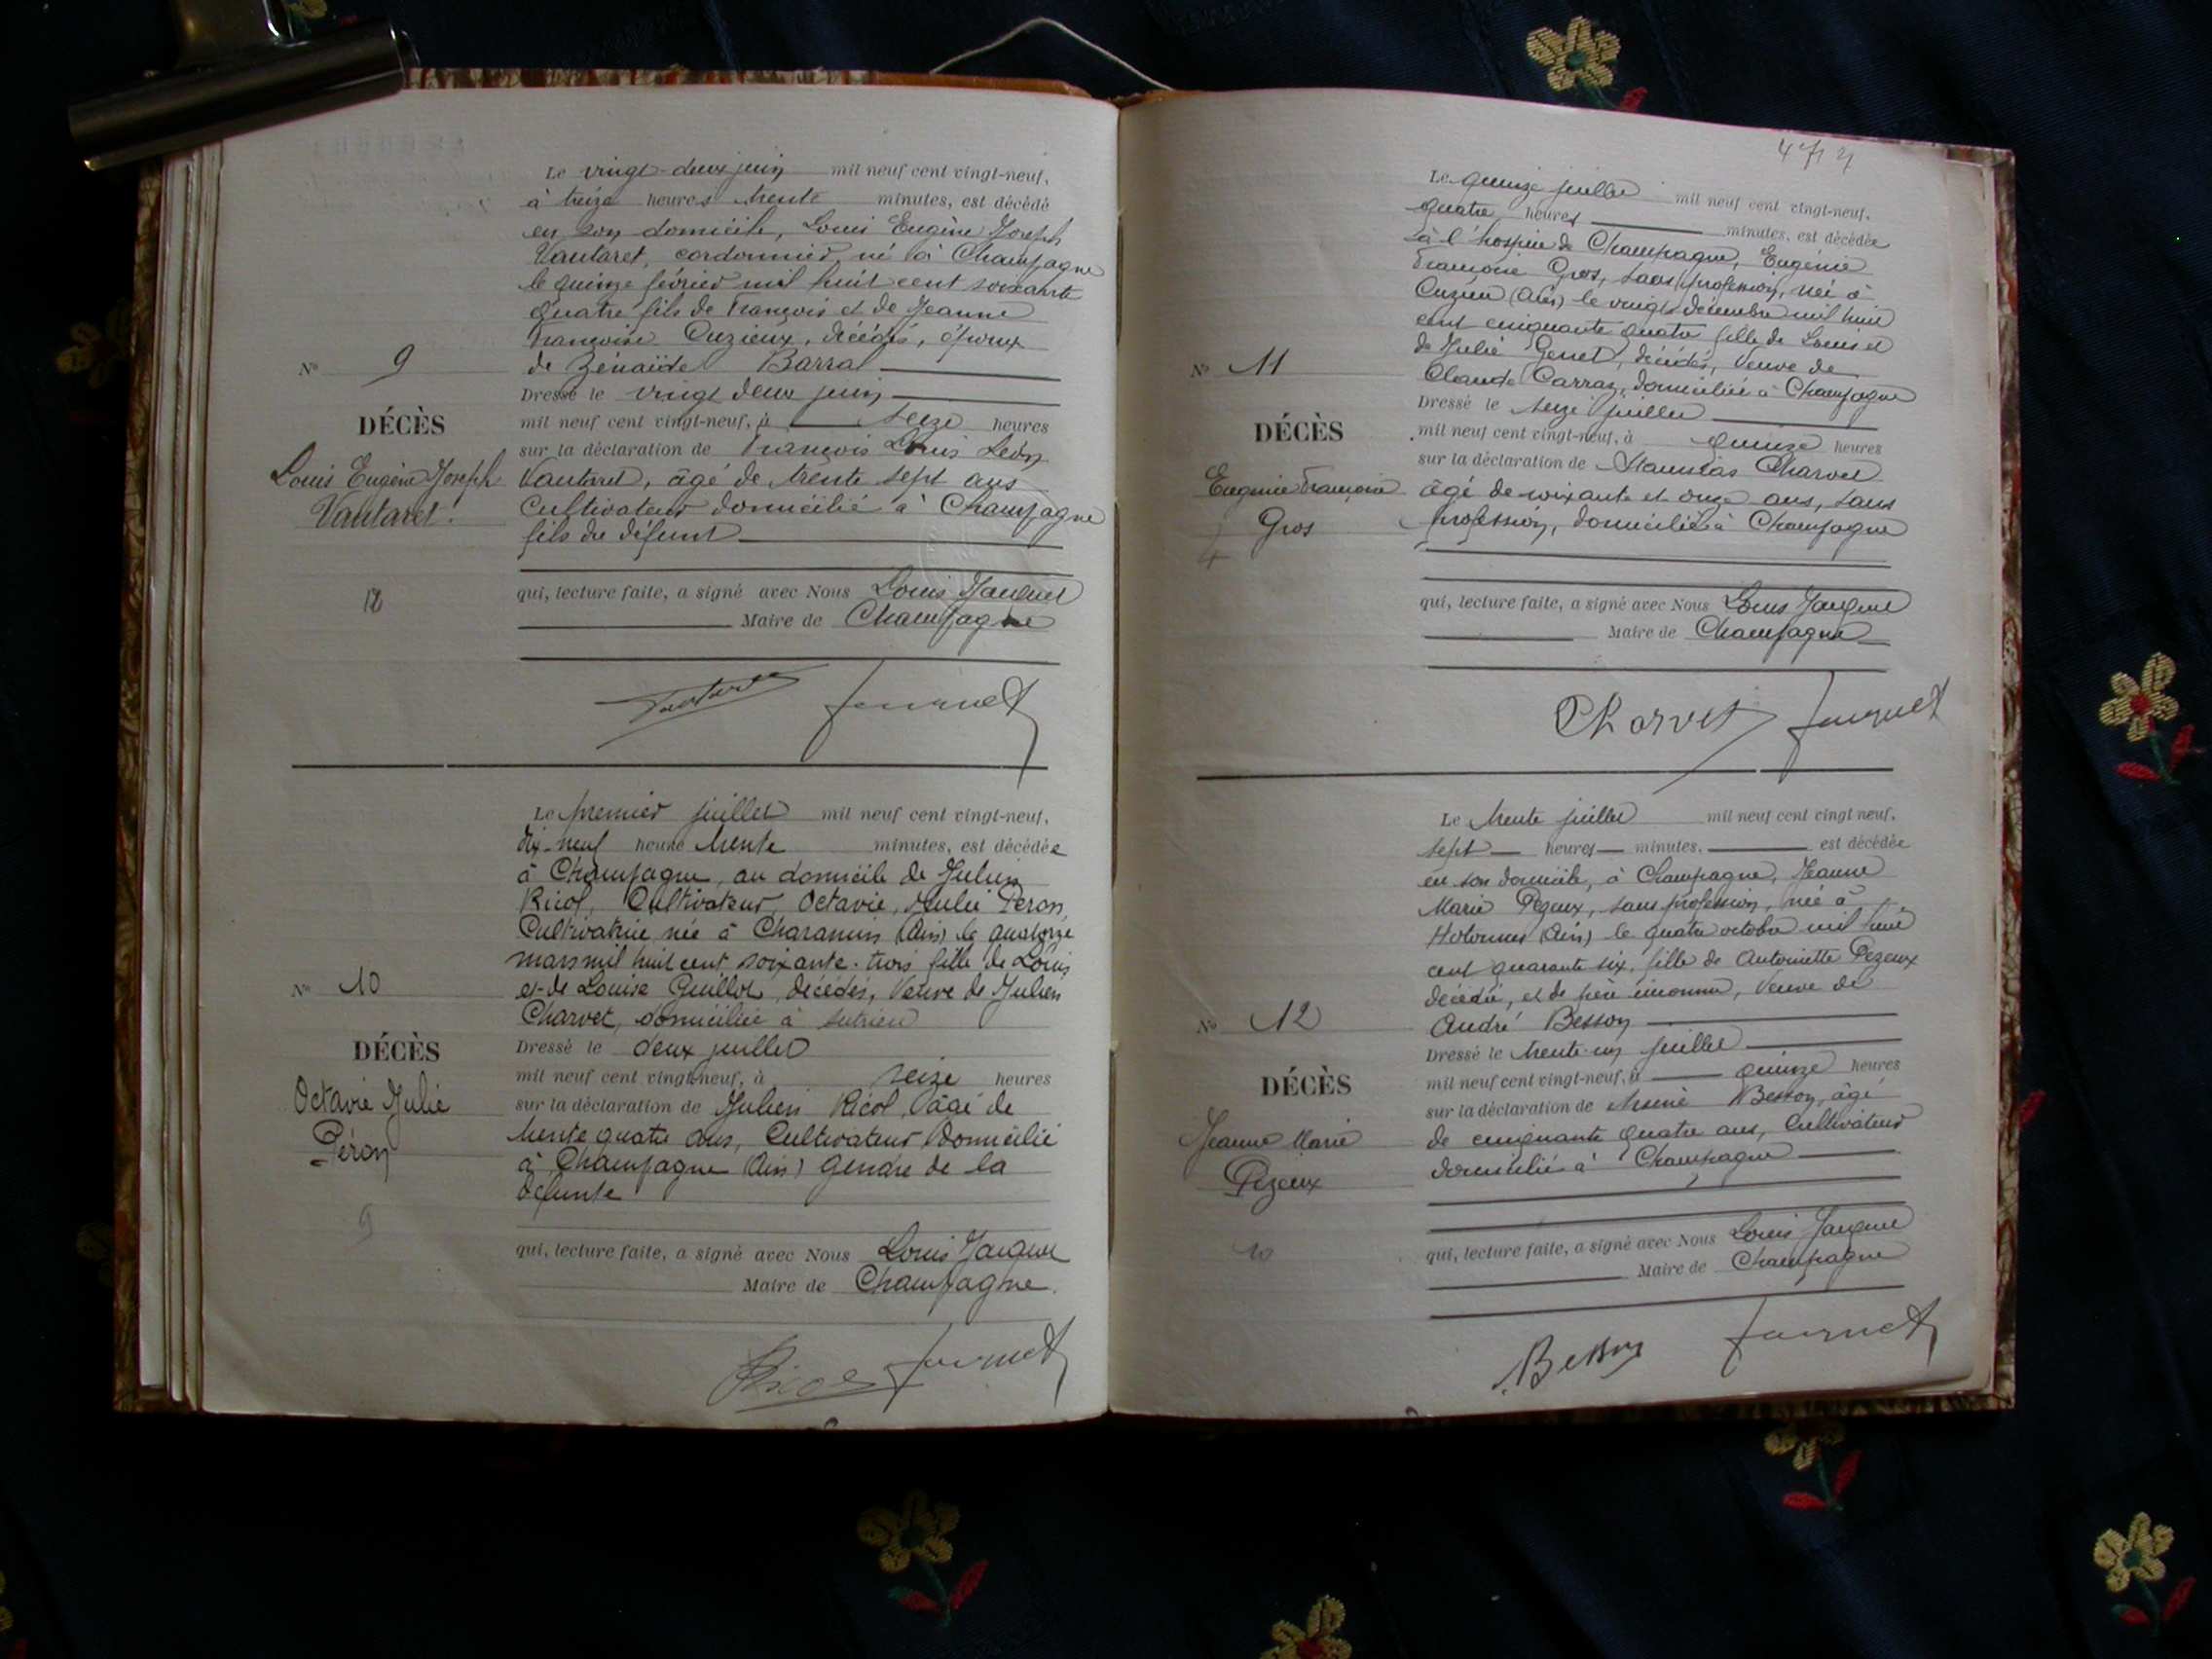 Le vingt-deux juin mil neuf cent vingt-neuf,
à treize heures trente minutes, est décédé
en son domicile, Louis Eugène Joseph
Vautaret, cordonnier, né à Champagne
le quinze février mil huit cent soixante
quatre fils de François et de Jeanne
Françoise Cuzieux, décédés, époux
de Zénaïde Barral
Dressé le vingt deux juin
mil neuf cent vingt-neuf, à seize heures
sur la déclaration de François Louis Léon
Vautaret, âgé de trente sept ans
Cultivateur domicilié à Champagne
fils du défunt
qui, lecture faite, a signé avec Nous Louis Jauquet
Maire de Champagne
No 9
DÉCÈS
Louis Eugène Joseph
Vautaret.
12
Le premier juillet mil neuf cent vingt-neuf,
dix-neuf heure trente minutes, est décédée
à Champagne, au domicile de Julien
Ricol, Cultivateur, Octavie, Julie Péron,
Cultivatrice née à (Ain) le quatorze
mars mil huit cent soixante-trois fille de Louis
et de Louise Guillot, décédés, Veuve de Julien
Charvet, domiciliée à Sutrieu
Dressé le deux juillet
mil neuf cent vingt-neuf, à seize heures
sur la déclaration de Julien Ricol, âgé de
trente quatre ans, Cultivateur domicilié
à Champagne (Ain) gendre de la
défunte
qui, lecture faite, a signé avec Nous Louis Jauquet
Maire de Champagne.
No 10
DÉCÈS
Octavie Julie
Péron
9
Le quinze juillet mil neuf cent vingt-neuf,
quatre heures minutes, est décédée
à l'hospice de Champagne, Eugénie
Françoise Gros, sans profession, née à
Cuzieu (Ain) le vingt décembre mil huit
cent cinquante quatre fille de Louis et
de Julie Genet, décédés, Veuve de
Claude Carraz, domiciliée à Champagne
Dressé le seize juillet
mil neuf cent vingt-neuf, à quinze heures
sur la déclaration de Stanislas Charvet
âgé de soixante et onze ans, sans
profession, domicilié à Champagne
qui, lecture faite, a signé avec Nous Louis Jauquet
Maire de Champagne
Charvet Jauquet
No 11
DÉCÈS
Eugénie Françoise
Gros
Le trente juillet mil neuf cent vingt-neuf,
sept heures minutes, est décédée
en son domicile, à Champagne, Jeanne
Marie Pezeux, sans profession, née à
Hotonnes (Ain) le quatre octobre mil huit
cent quarante six, fille de Antoinette Pezeux
décédée, et de père inconnu, Veuve de
André Besson
Dressé le trente-un juillet
mil neuf cent vingt-neuf, à quinze heures
sur la déclaration de Besson, âgé
de cinquante quatre ans, Cultivateur
domicilié à Champagne
qui, lecture faite, a signé avec Nous Louis Jauquet
Maire de Champagne
Besson Jauquet
No 12
DÉCÈS
Jeanne Marie
Pezeux
10